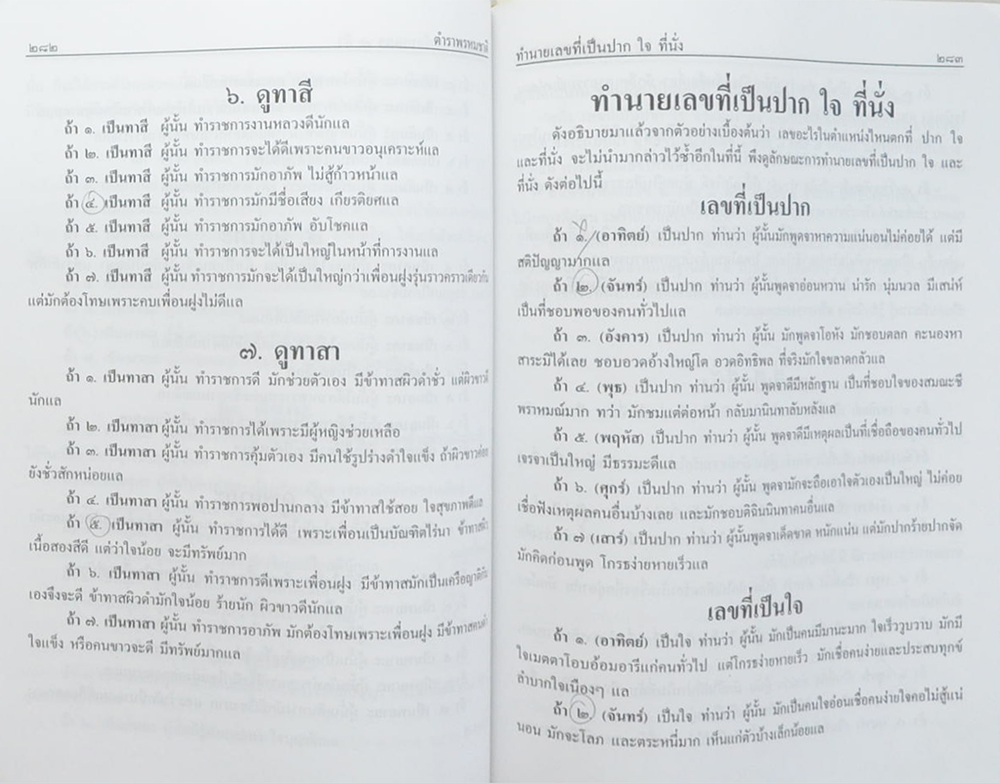 ๒๘๒
ตำราพรหมชาติ
๖. ดูทาสี
ถ้า ๑. เป็นทาสี ผู้นั้น ทำราชการงานหลวงดีนักแล
ถ้า ๒. เป็นทาสี ผู้นั้น ทำราชการจะได้ดีเพราะคนขาวอนุเคราะห์แล
ถ้า ๓. เป็นทาสี ผู้นั้น ทำราชการมักอาภัพ ไม่สู้ก้าวหน้าแล
ถ้า ๔. เป็นทาสี ผู้นั้น ทำราชการมักมีชื่อเสียง เกียรติยศแล
ถ้า ๕. เป็นทาสี ผู้นั้น ทำราชการมักอาภัพ อับโชคแล
ถ้า ๖. เป็นทาสี ผู้นั้น ทำราชการจะได้เป็นใหญ่ในหน้าที่การงานแล
ถ้า ๗. เป็นทาสี ผู้นั้น ทำราชการมักจะได้เป็นใหญ่กว่าเพื่อนฝูงรุ่นราวคราวเดียวกัน
แต่มักต้องโทษเพราะคบเพื่อนฝูงไม่ดีแล
๗. ดูทาสา
ถ้า ๑. เป็นทาสา ผู้นั้น ทำราชการดี มักช่วยตัวเอง มีข้าทาสผิวดำชั่ว แต่ผิวขาวดี
นักแล
ถ้า ๒. เป็นทาสา ผู้นั้น ทำราชการได้เพราะมีผู้หญิงช่วยเหลือ
ถ้า ๓. เป็นทาสา ผู้นั้น ทำราชการคุ้มตัวเอง มีคนใช้รูปร่างดำใจแข็ง ถ้าผิวขาวค่อย
ยังชั่วสักหน่อยแล
ถ้า ๔. เป็นทาสา ผู้นั้น ทำราชการพอปานกลาง มีข้าทาสใช้สอย ใจสุขภาพดีแล
ถ้า ๕. เป็นทาสา ผู้นั้น ทำราชการได้ดี เพราะเพื่อนเป็นบัณฑิตไร่นา ข้าทาสดำ
เนื้อสองสีดี แต่ว่าใจน้อย จะมีทรัพย์มาก
ถ้า ๖. เป็นทาสา ผู้นั้น ทำราชการดีเพราะเพื่อนฝูง มีข้าทาสมักเป็นเครือญาติกัน
เองจึงจะดี ข้าทาสผิวดำมักใจน้อย ร้ายนัก ผิวขาวดีนักแล
ถ้า ๗. เป็นทาสา ผู้นั้น ทำราชการอาภัพ มักต้องโทษเพราะเพื่อนฝูง มีข้าทาสคนดำ
ใจแข็ง หรือคนขาวจะดี มีทรัพย์มากแล
ทำนายเลขที่เป็นปาก ใจ ที่นั่ง
๒๘๓
ทำนายเลขที่เป็นปาก ใจ ที่นั่ง
ดังอธิบายมาแล้วจากตัวอย่างเบื้องต้นว่า เลขอะไรในตำแหน่งไหนตกที่ ปาก ใจ
และที่นั่ง จะไม่นำมากล่าวไว้ซ้ำอีกในที่นี้ พึงดูลักษณะการทำนายเลขที่เป็นปาก ใจ และ
ที่นั่ง ดังต่อไปนี้
เลขที่เป็นปาก
ถ้า ๑. (อาทิตย์) เป็นปาก ท่านว่า ผู้นั้นมักพูดจาหาความแน่นอนไม่ค่อยได้ แต่มี
สติปัญญามากแล
ถ้า ๒. (จันทร์) เป็นปาก ท่านว่า ผู้นั้นพูดจาอ่อนหวาน น่ารัก นุ่มนวล มีเสน่ห์
เป็นที่ชอบพอของคนทั่วไปแล
ถ้า ๓. (อังคาร) เป็นปาก ท่านว่า ผู้นั้น มักพูดจาโอหัง มักชอบตลก คะนองหา
สาระมิได้เลย ชอบอวดอ้างใหญ่โต อวดอิทธิพล ที่จริงมักใจขลาดกลัวแล
ถ้า ๔. (พุธ) เป็นปาก ท่านว่า ผู้นั้น พูดจาดีมีหลักฐาน เป็นที่ชอบใจของสมณะชี
พราหมณ์มาก ทว่า มักชมแต่ต่อหน้า กลับมานินทาลับหลังแล
ถ้า ๕. (พฤหัส) เป็นปาก ท่านว่า ผู้นั้น พูดจาดีมีเหตุผลเป็นที่เชื่อถือของคนทั่วไป
เจรจาเป็นใหญ่ มีธรรมะดีแล
ถ้า ๖. (ศุกร์) เป็นปาก ท่านว่า ผู้นั้น พูดจามักจะถือเอาใจตัวเองเป็นใหญ่ ไม่ค่อย
เชื่อฟังเหตุผลคนอื่นบ้างเลย และมักชอบติฉินนินทาคนอื่นแล
ถ้า ๗ (เสาร์) เป็นปาก ท่านว่า ผู้นั้นพูดจาเด็ดขาด หนักแน่น แต่มักปากร้ายปากจัด
มักคิดก่อนพูด โกรธง่ายหายเร็วแล
เลขที่เป็นใจ
ถ้า ๑. (อาทิตย์) เป็นใจ ท่านว่า ผู้นั้น มักเป็นคนมีมานะมาก ใจเร็ววูบวาบ มักมี
ใจเมตตาโอบอ้อมอารีแก่คนทั่วไป แต่โกรธง่ายหายเร็ว มักเชื่อคนง่ายและประสบทุกข์
ลำบากใจเนืองๆ แล
ถ้า ๒. (จันทร์) เป็นใจ ท่านว่า ผู้นั้น มักเป็นคนใจอ่อนเชื่อคนง่ายใจคอไม่สู้แน่
นอน มักจะโลภ และตระหนี่มาก เห็นแก่ตัวบ้างเล็กน้อยแล